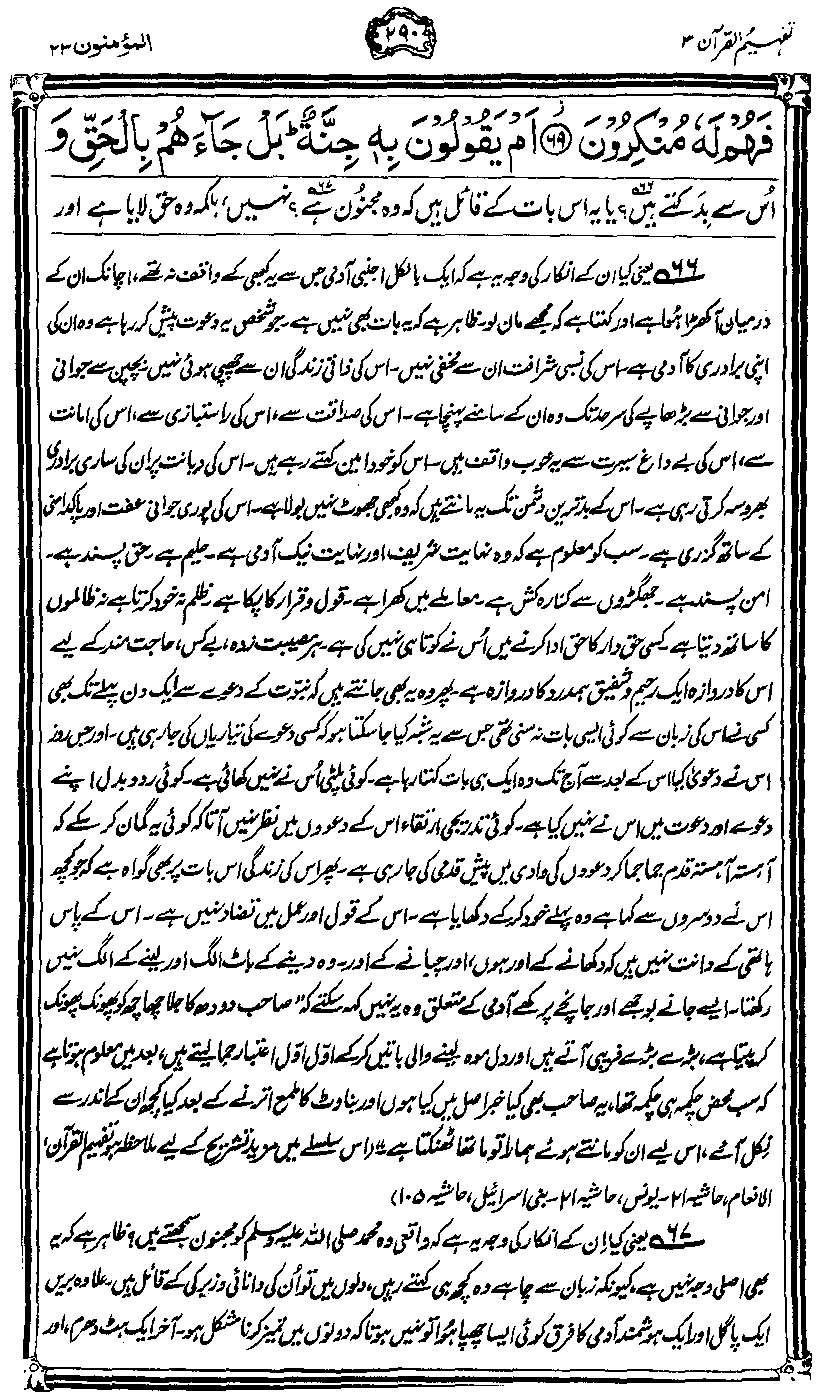 تفہیم القرآن ۳
۲۹۰
المؤمنون ۲۳
فَهُمْ لَهٗ مُنْكِرُوْنَ ﴿۶۹﴾ اَمْ يَقُوْلُوْنَ بِهٖ جِنَّةٌ ؕ بَلْ جَآءَهُمْ بِالْحَقِّ وَ
اُس سے بِدَکتے ہیں؟۶۶ یا یہ اس بات کے قائل ہیں کہ وہ مجنُون ہے؟۶۷ نہیں، بلکہ وہ حق لایا ہے اور
۶۶ یعنی کیا ان کے انکار کی وجہ یہ ہے کہ ایک بالکل اجنبی آدمی جس سے یہ کبھی کے واقف نہ تھے، اچانک ان کے
درمیان آکھڑا ہُوا ہے اور کہتا ہے کہ مجھے مان لو۔ ظاہر ہے کہ یہ بات بھی نہیں ہے۔ جو شخص یہ دعوت پیش کر رہا ہے وہ ان کی
اپنی برادری کا آدمی ہے۔ اس کی نسبی شرافت ان سے مخفی نہیں۔ اس کی ذاتی زندگی ان سے چھپی ہوئی نہیں۔ بچپن سے جوانی
اور جوانی سے بڑھاپے کی سرحد تک وہ ان کے سامنے پہنچا ہے۔ اس کی صداقت سے، اس کی راستبازی سے، اس کی امانت
سے، اس کی بے داغ سیرت سے یہ خوب واقف ہیں۔ اس کو خود امین کہتے رہے ہیں۔ اس کی دیانت پر ان کی ساری برادری
بھروسہ کرتی رہی ہے۔ اس کے بدترین دشمن تک یہ مانتے ہیں کہ وہ کبھی جھوٹ نہیں بولا ہے۔ اس کی پوری جوانی عفت اور پاکدامنی
کے ساتھ گزری ہے۔ سب کو معلوم ہے کہ وہ نہایت شریف اور نہایت نیک آدمی ہے۔ حلیم ہے۔ حق پسند ہے۔
امن پسند ہے۔ جھگڑوں سے کنارہ کش ہے۔ معاملے میں کھرا ہے۔ قول و قرار کا پکا ہے۔ ظلم نہ خود کرتا ہے نہ ظالموں
کا ساتھ دیتا ہے۔ کسی حق دار کا حق ادا کرنے میں اُس نے کوتاہی نہیں کی ہے۔ ہر مصیبت زدہ، بے کس، حاجت مند کے لیے
اس کا دروازہ ایک رحیم و شفیق ہمدرد کا دروازہ ہے۔ پھر وہ یہ بھی جانتے ہیں کہ نبوّت کے دعوے سے ایک دن پہلے تک بھی
کسی نے اس کی زبان سے کوئی ایسی بات نہ سنی تھی جس سے یہ شبہ کیا جا سکتا ہو کہ کسی دعوے کی تیاریاں کی جا رہی ہیں۔ اور جس روز
اس نے دعویٰ کیا اس کے بعد سے آج تک وہ ایک ہی بات کہتا رہا ہے۔ کوئی پلٹی اُس نے نہیں کھائی ہے۔ کوئی ردوبدل اپنے
دعوے اور دعوت میں اس نے نہیں کیا ہے۔ کوئی تدریجی ارتقاء اس کے دعووں میں نظر نہیں آتا کہ کوئی یہ گمان کر سکے کہ
آہستہ آہستہ قدم جما جما کر دعووں کی وادی میں پیش قدمی کی جا رہی ہے۔ پھر اس کی زندگی اس بات پر بھی گواہ ہے کہ جو کچھ
اس نے دوسروں سے کہا ہے وہ پہلے خود کر کے دکھایا ہے۔ اس کے قول اور عمل میں تضاد نہیں ہے۔ اس کے پاس
ہاتھی کے دانت نہیں ہیں کہ دکھانے کے اور ہوں، اور چبانے کے اور۔ وہ دینے کے باٹ الگ اور لینے کے الگ نہیں
رکھتا۔ ایسے جانے بوجھے اور جانچے پرکھے آدمی کے متعلق وہ یہ نہیں کہہ سکتے کہ "صاحب دودھ کا جلا چھاچھ کو پھونک پھونک
کر پیتا ہے، بڑے بڑے فریبی آتے ہیں اور دل موہ لینے والی باتیں کر کے اوّل اوّل اعتبار جما لیتے ہیں، بعد میں معلوم ہوتا ہے
کہ سب محض چکمہ ہی چکمہ تھا، یہ صاحب بھی کیا خبر اصل میں کیا ہوں اور بناوٹ کا ملمع اترنے کے بعد کیا کچھ ان کے اندر سے
نِکل آئے، اس لیے ان کو مانتے ہوئے ہمارا تو ماتھا ٹھنکتا ہے"۔ (اس سلسلے میں مزید تشریح کے لیے ملاحظہ ہو تفہیم القرآن،
الانعام، حاشیہ ۲۱۔ یونس، حاشیہ ۲۱۔ بنی اسرائیل، حاشیہ ۱۰۵)
۶۷ یعنی کیا اِن کے انکار کی وجہ یہ ہے کہ واقعی وہ محمد صلی اللہ علیہ وسلم کو مجنون سمجھتے ہیں؟ ظاہر ہے کہ یہ
بھی اصلی وجہ نہیں ہے، کیونکہ زبان سے چاہے وہ کچھ ہی کہتے رہیں، دلوں میں تو اُن کی دانائی و زیرکی کے قائل ہیں۔ علاوہ بریں
ایک پاگل اور ایک ہوشمند آدمی کا فرق کوئی ایسا چھپا ہُوا تو نہیں ہوتا کہ دونوں میں تمیز کرنا مشکل ہو۔ آخر ایک ہٹ دھرم، اور